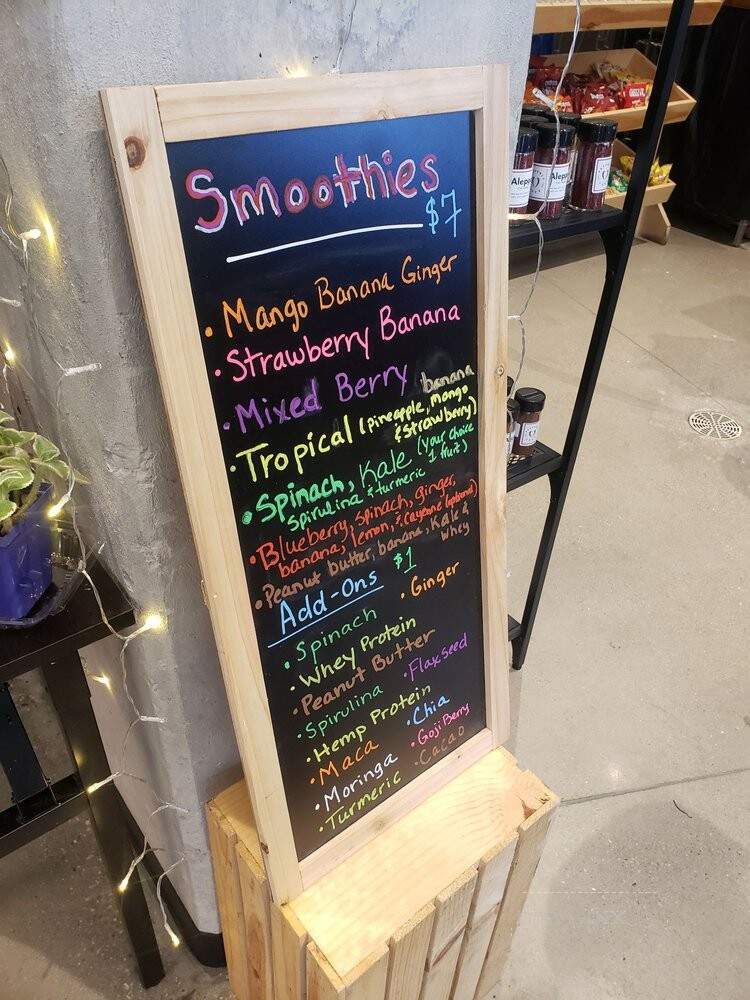 Smoothies
$7
• Mango Banana Ginger
• Strawberry Banana
• Mixed Berry banana
• Tropical (pineapple, mango
& strawberry)
• Spinach, Kale (your choice
1 fruit)
Spirulina & turmeric
• Blueberry, spinach, ginger,
banana, lemon, & cayenne (optional)
• Peanut butter, banana, Kale &
whey
Add-Ons $1
• Spinach • Ginger
• Whey Protein
• Peanut Butter
• Spirulina • Flaxseed
• Hemp Protein
• Maca • Chia
• Moringa • Goji Berry
• Turmeric • Cacao
Alepp
Alepp